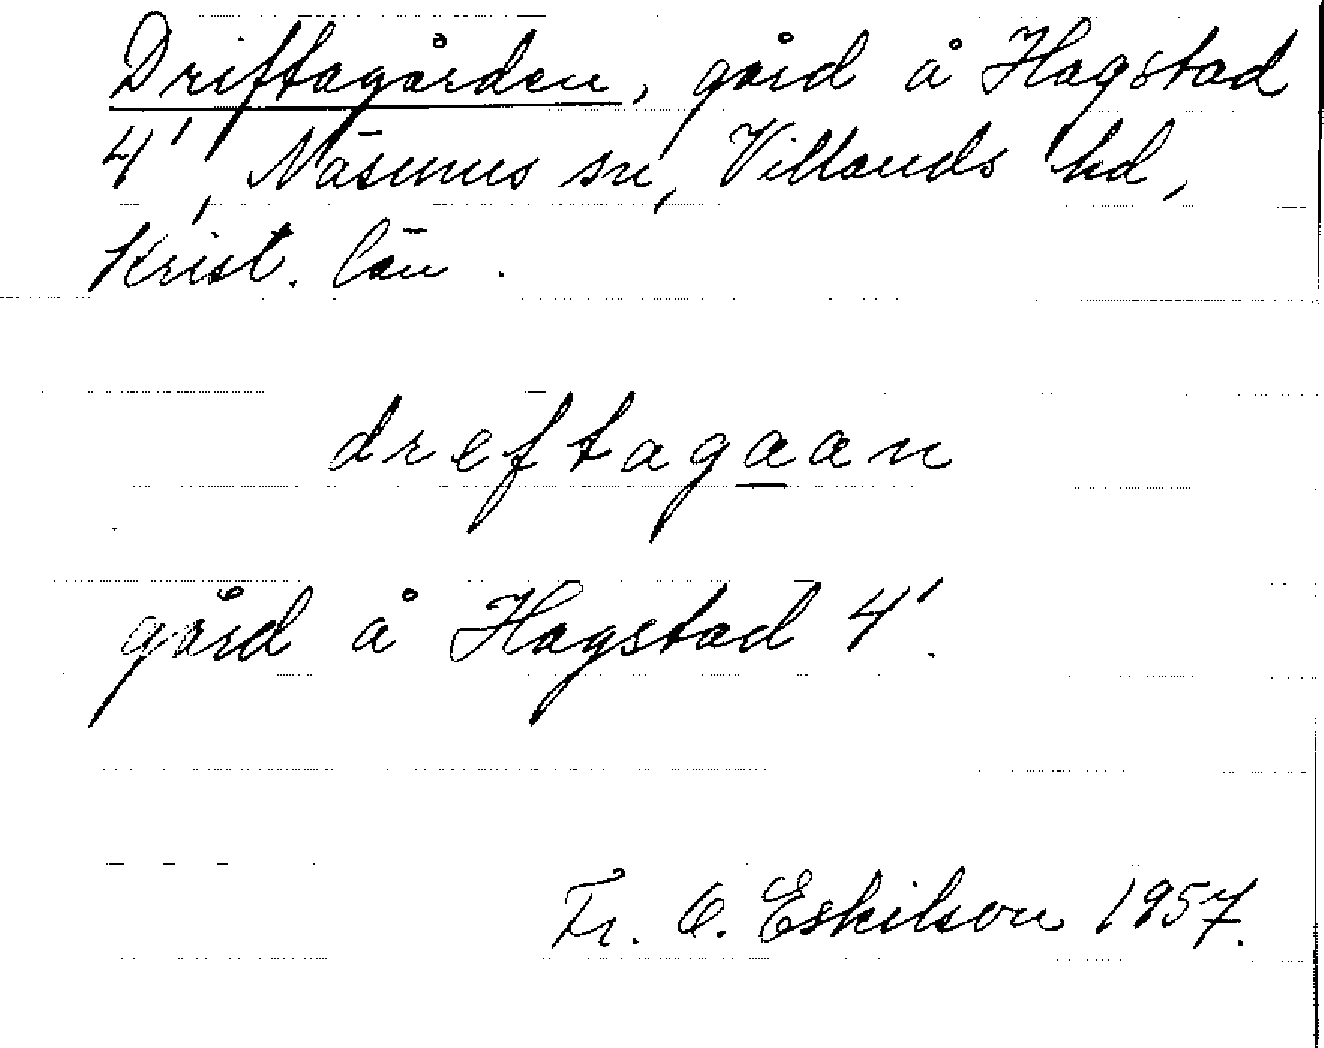 Driftagården, gård å Hagstad
4', Näsums sn, Villands hd,
Krist. län.
dreftagaan
gård å Hagstad 4'.
Fr. O. Eskilson 1957.